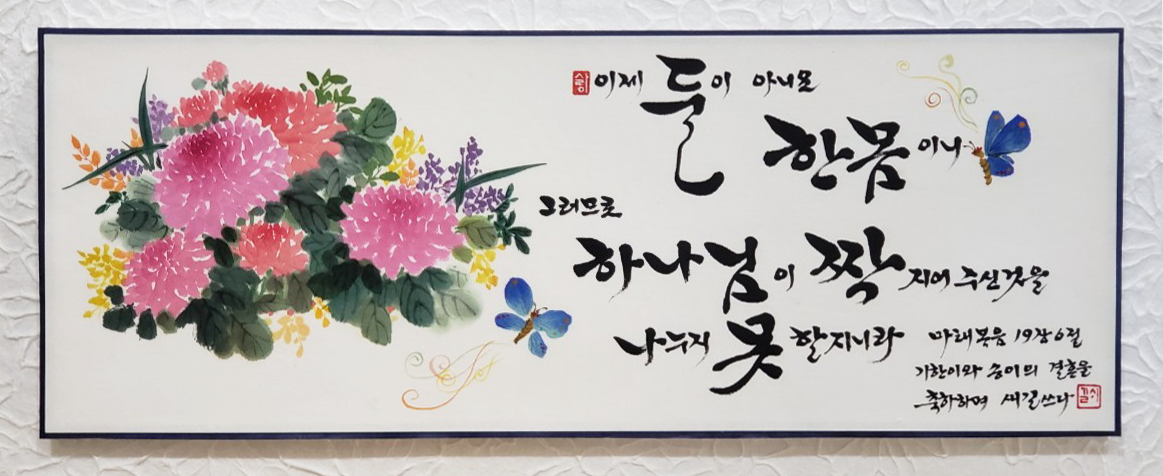 사랑 이제 둘이 아니요
한몸이니
그러므로
하나님이 짝지어 주신것을
나누지 못할지니라 마태복음 19장 6절
기한이와 송이의 결혼을
축하하며 새길쓰다